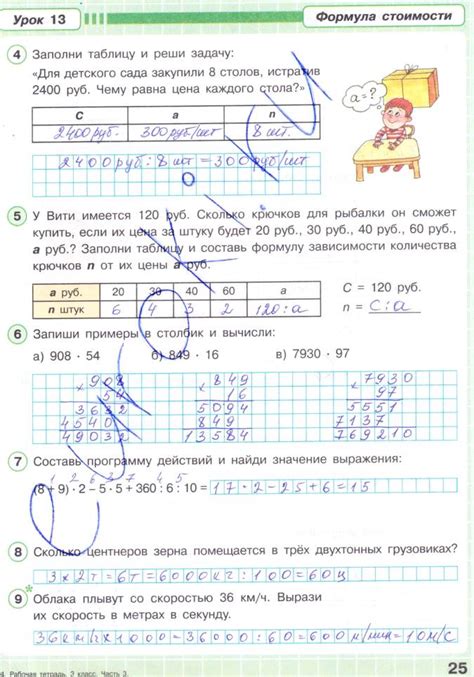 Урок 13
Формула стоимости
4 Заполни таблицу и реши задачу:
«Для детского сада закупили 8 столов, истратив
2400 руб. Чему равна цена каждого стола?»
a = ?
C a n
2400 руб. 300 руб/шт 8 шт.
2400 руб : 8 шт = 300 руб/шт
5 У Вити имеется 120 руб. Сколько крючков для рыбалки он сможет
купить, если их цена за штуку будет 20 руб., 30 руб., 40 руб., 60 руб.,
a руб.? Заполни таблицу и составь формулу зависимости количества
крючков n от их цены a руб.
a руб. 20 30 40 60 a
n штук 6 4 3 2 120 : a
C = 120 руб.
n = C : a
6 Запиши примеры в столбик и вычисли:
а) 908 · 54 б) 849 · 16 в) 7930 · 97
908 849 7930
× 54 × 16 × 97
3632 5094 5551
4540 849 7137
49032 13584 769210
7 Составь программу действий и найди значение выражения:
1 2 6 3 7 4 5
(8 + 9) · 2 – 5 · 5 + 360 : 6 : 10 = 17 · 2 – 25 + 6 = 15
8 Сколько центнеров зерна помещается в трёх двухтонных грузовиках?
3 × 2т = 6т = 6000кг : 100 = 60ц
9* Облака плывут со скоростью 36 км/ч. Вырази
их скорость в метрах в секунду.
36км/ч × 1000 = 36000 : 60 = м/мин = 10м/с
4. Рабочая тетрадь, 2 класс. Часть 3.
25